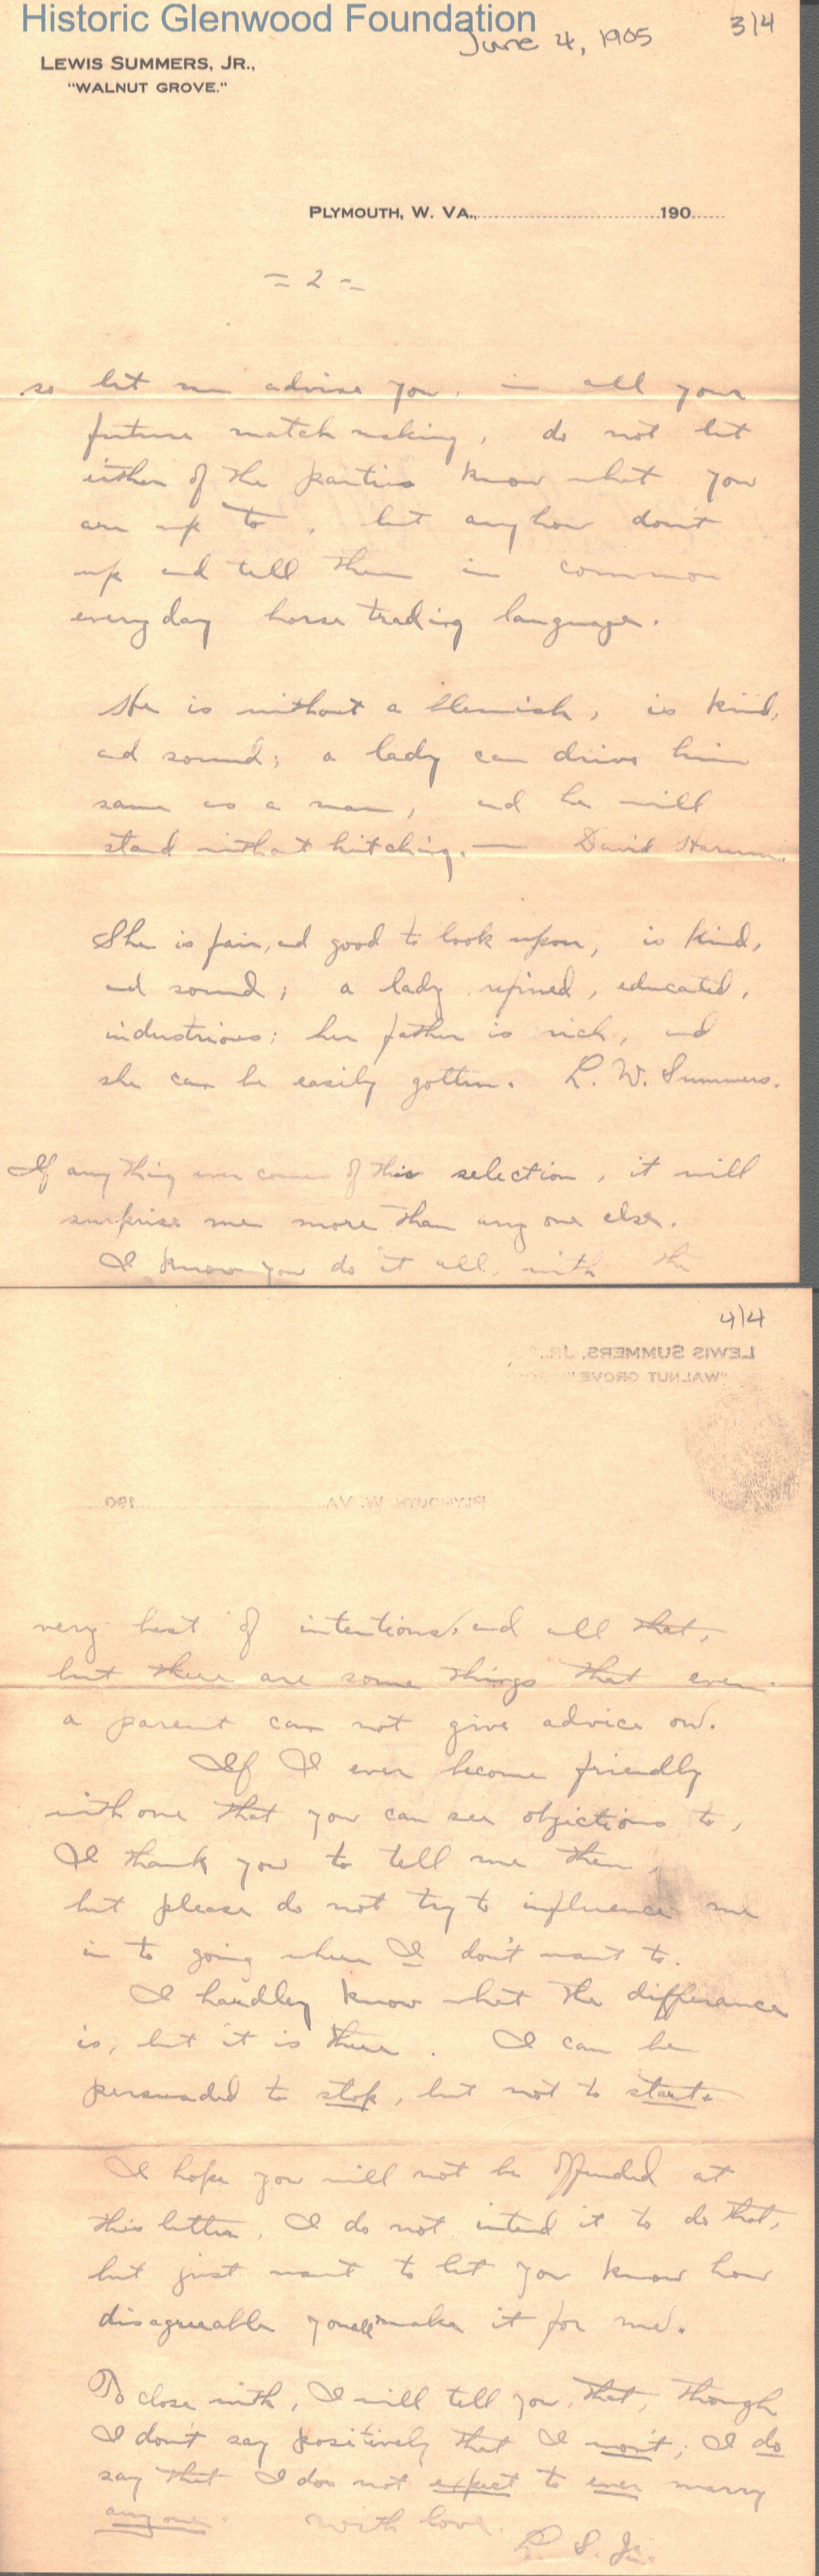 Historic Glenwood Foundation
June 4, 1905
3/4
LEWIS SUMMERS, JR.,
"WALNUT GROVE."
PLYMOUTH, W. VA., 190
= 2 =
so let me advise you, in all your
future match making, do not let
either of the parties know what you
are up to, but anyhow don't
up and tell them in common
every day horse trading language.
He is without a blemish, is kind,
and sound; a lady can drive him
same as a man, and he will
stand without hitching. — David Harum.
She is fair, and good to look upon, is kind,
and sound; a lady refined, educated,
industrious; her father is rich, and
she can be easily gotten. L. W. Summers.
If any thing ever comes of this selection, it will
surprise me more than any one else.
I know you do it all with the
4/4
LEWIS SUMMERS, JR.,
"WALNUT GROVE."
PLYMOUTH, W. VA. 190
very best of intentions, and all that,
but there are some things that even
a parent can not give advice on.
If I ever become friendly
with one that you can see objections to,
I thank you to tell me then,
but please do not try to influence me
in to going where I don't want to.
I hardley know what the differance
is, but it is there. I can be
persuaded to stop, but not to start.
I hope you will not be offended at
this letter, I do not intend it to do that,
but just want to let you know how
disagreeable you all make it for me.
To close with, I will tell you, that, though
I don't say positively that I won't; I do
say that I do not expect to ever marry
any one. With love.
L. S. Jr.